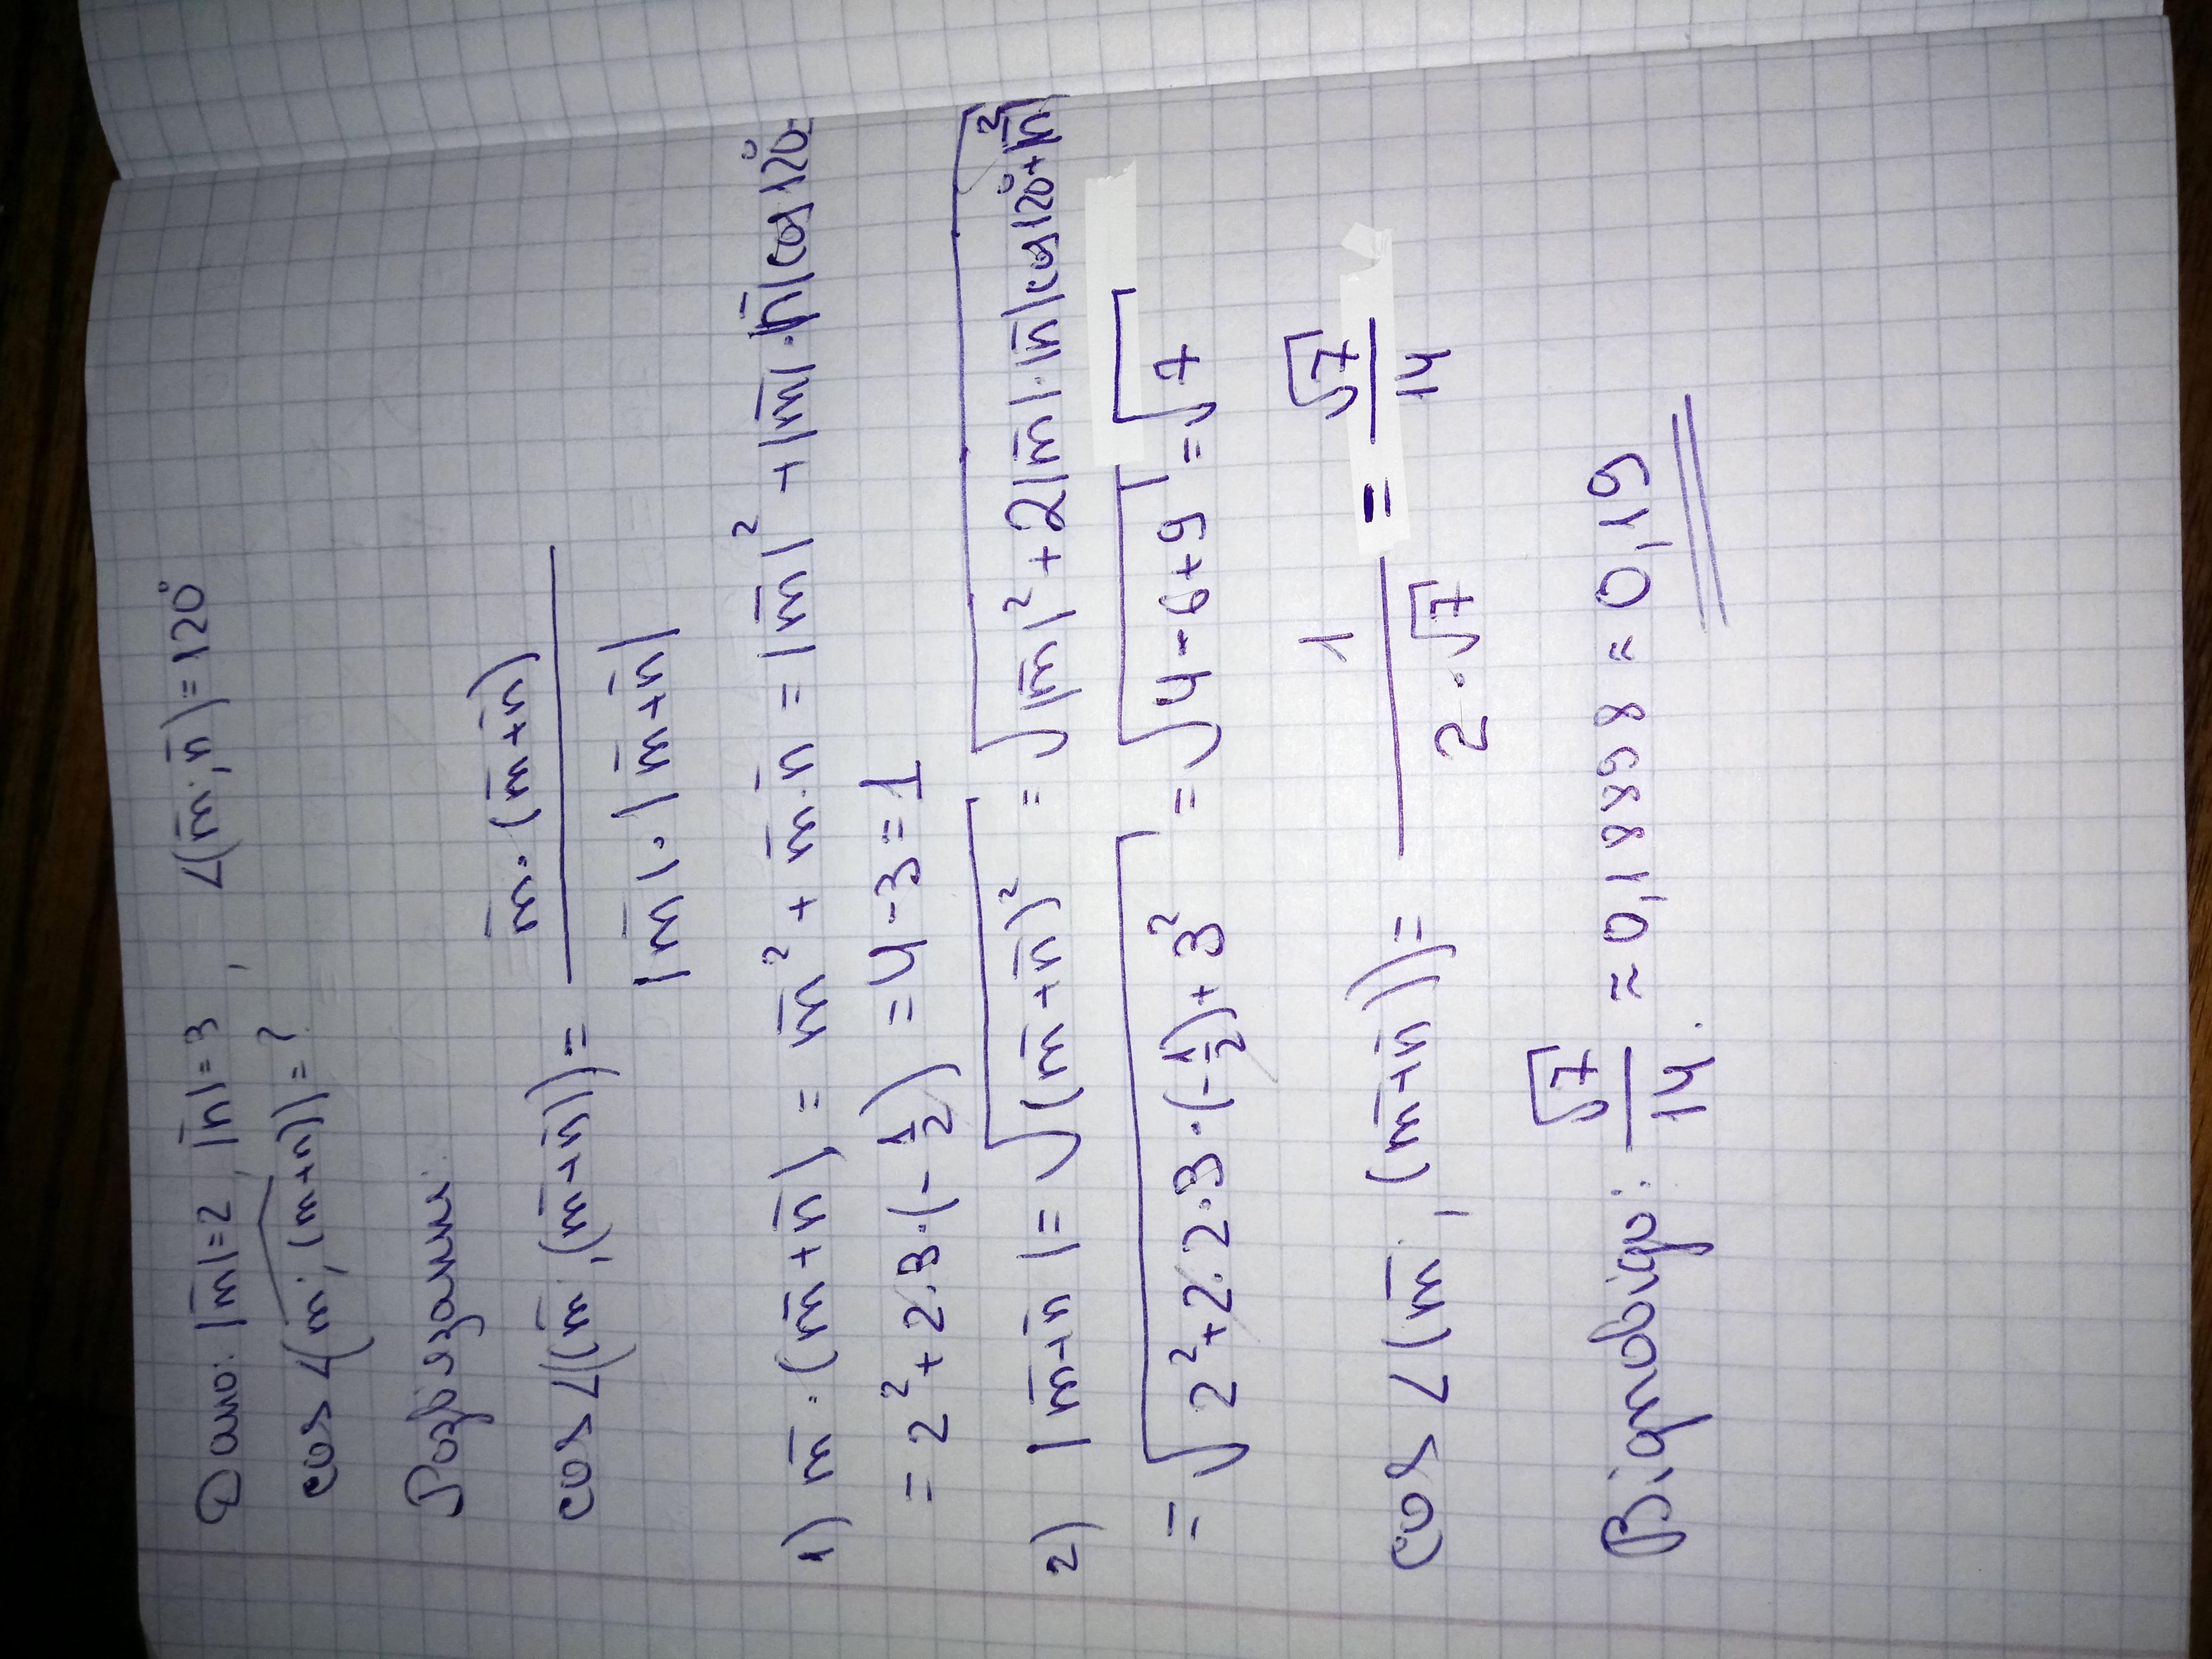 Дано: |m̅|=2, |n̅|=3, ∠(m̅; n̅)=120°
cos∠(m̅; (m+n))=?
Розв'язання:
cos∠((m̅; (m̅+n̅))= m̅·(m̅+n̅) / |m̅|·|m̅+n̅|
1) m̅·(m̅+n̅)=m̅²+m̅·n̅=|m̅|²+|m̅|·|n̅|cos120°=
=2²+2·3·(-1/2)=4-3=1
2) |m̅+n̅|=√(m̅+n̅)²=√|m̅|²+2|m̅|·|n̅|cos120°+|n̅|²
=√2²+2·2·3·(-1/2)+3²=√4-6+9=√7
cos∠(m̅, (m̅+n̅))= 1 / 2·√7 = √7 / 14
Відповідь: √7 / 14. ≈0,18898≈0,19